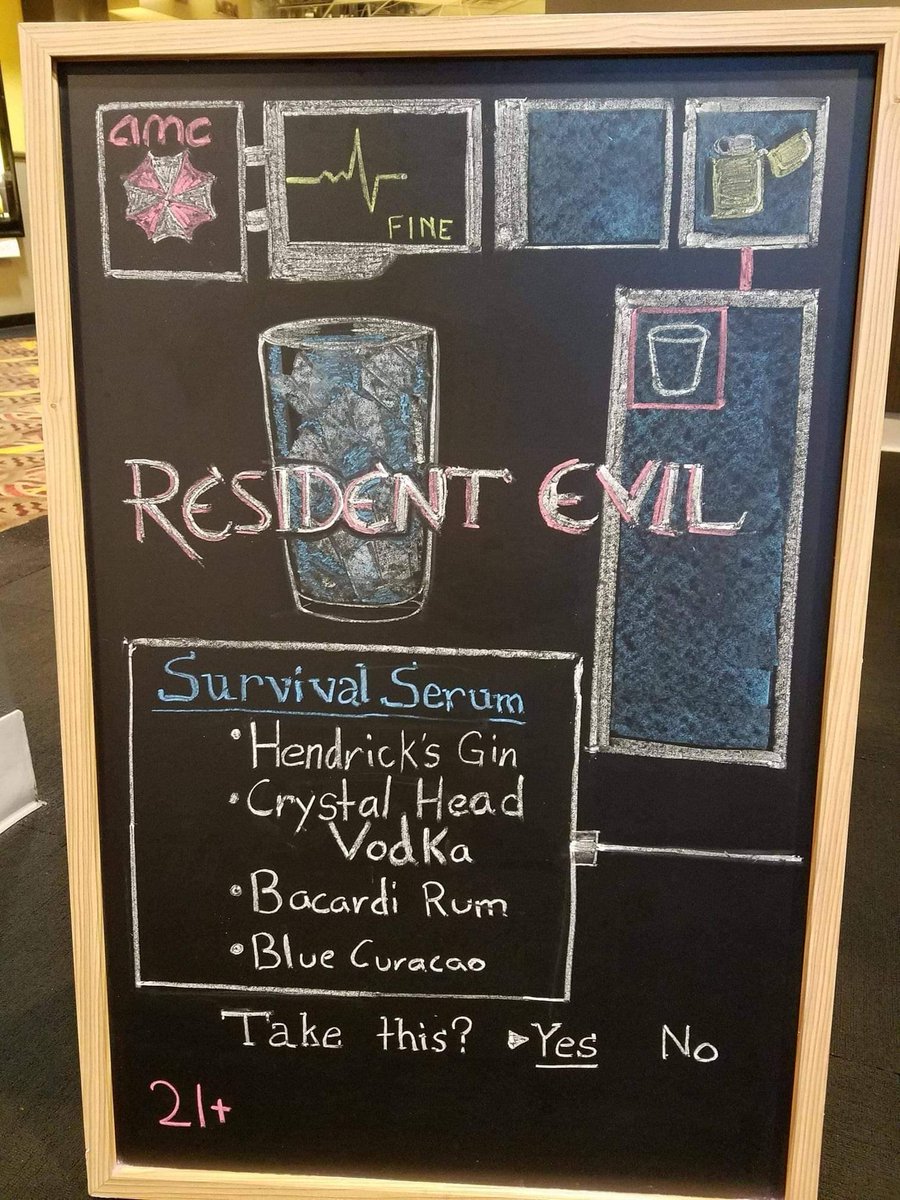 amc
FINE
RESIDENT EVIL
Survival Serum
• Hendrick's Gin
• Crystal Head
Vodka
• Bacardi Rum
• Blue Curacao
Take this? ▶Yes No
21+